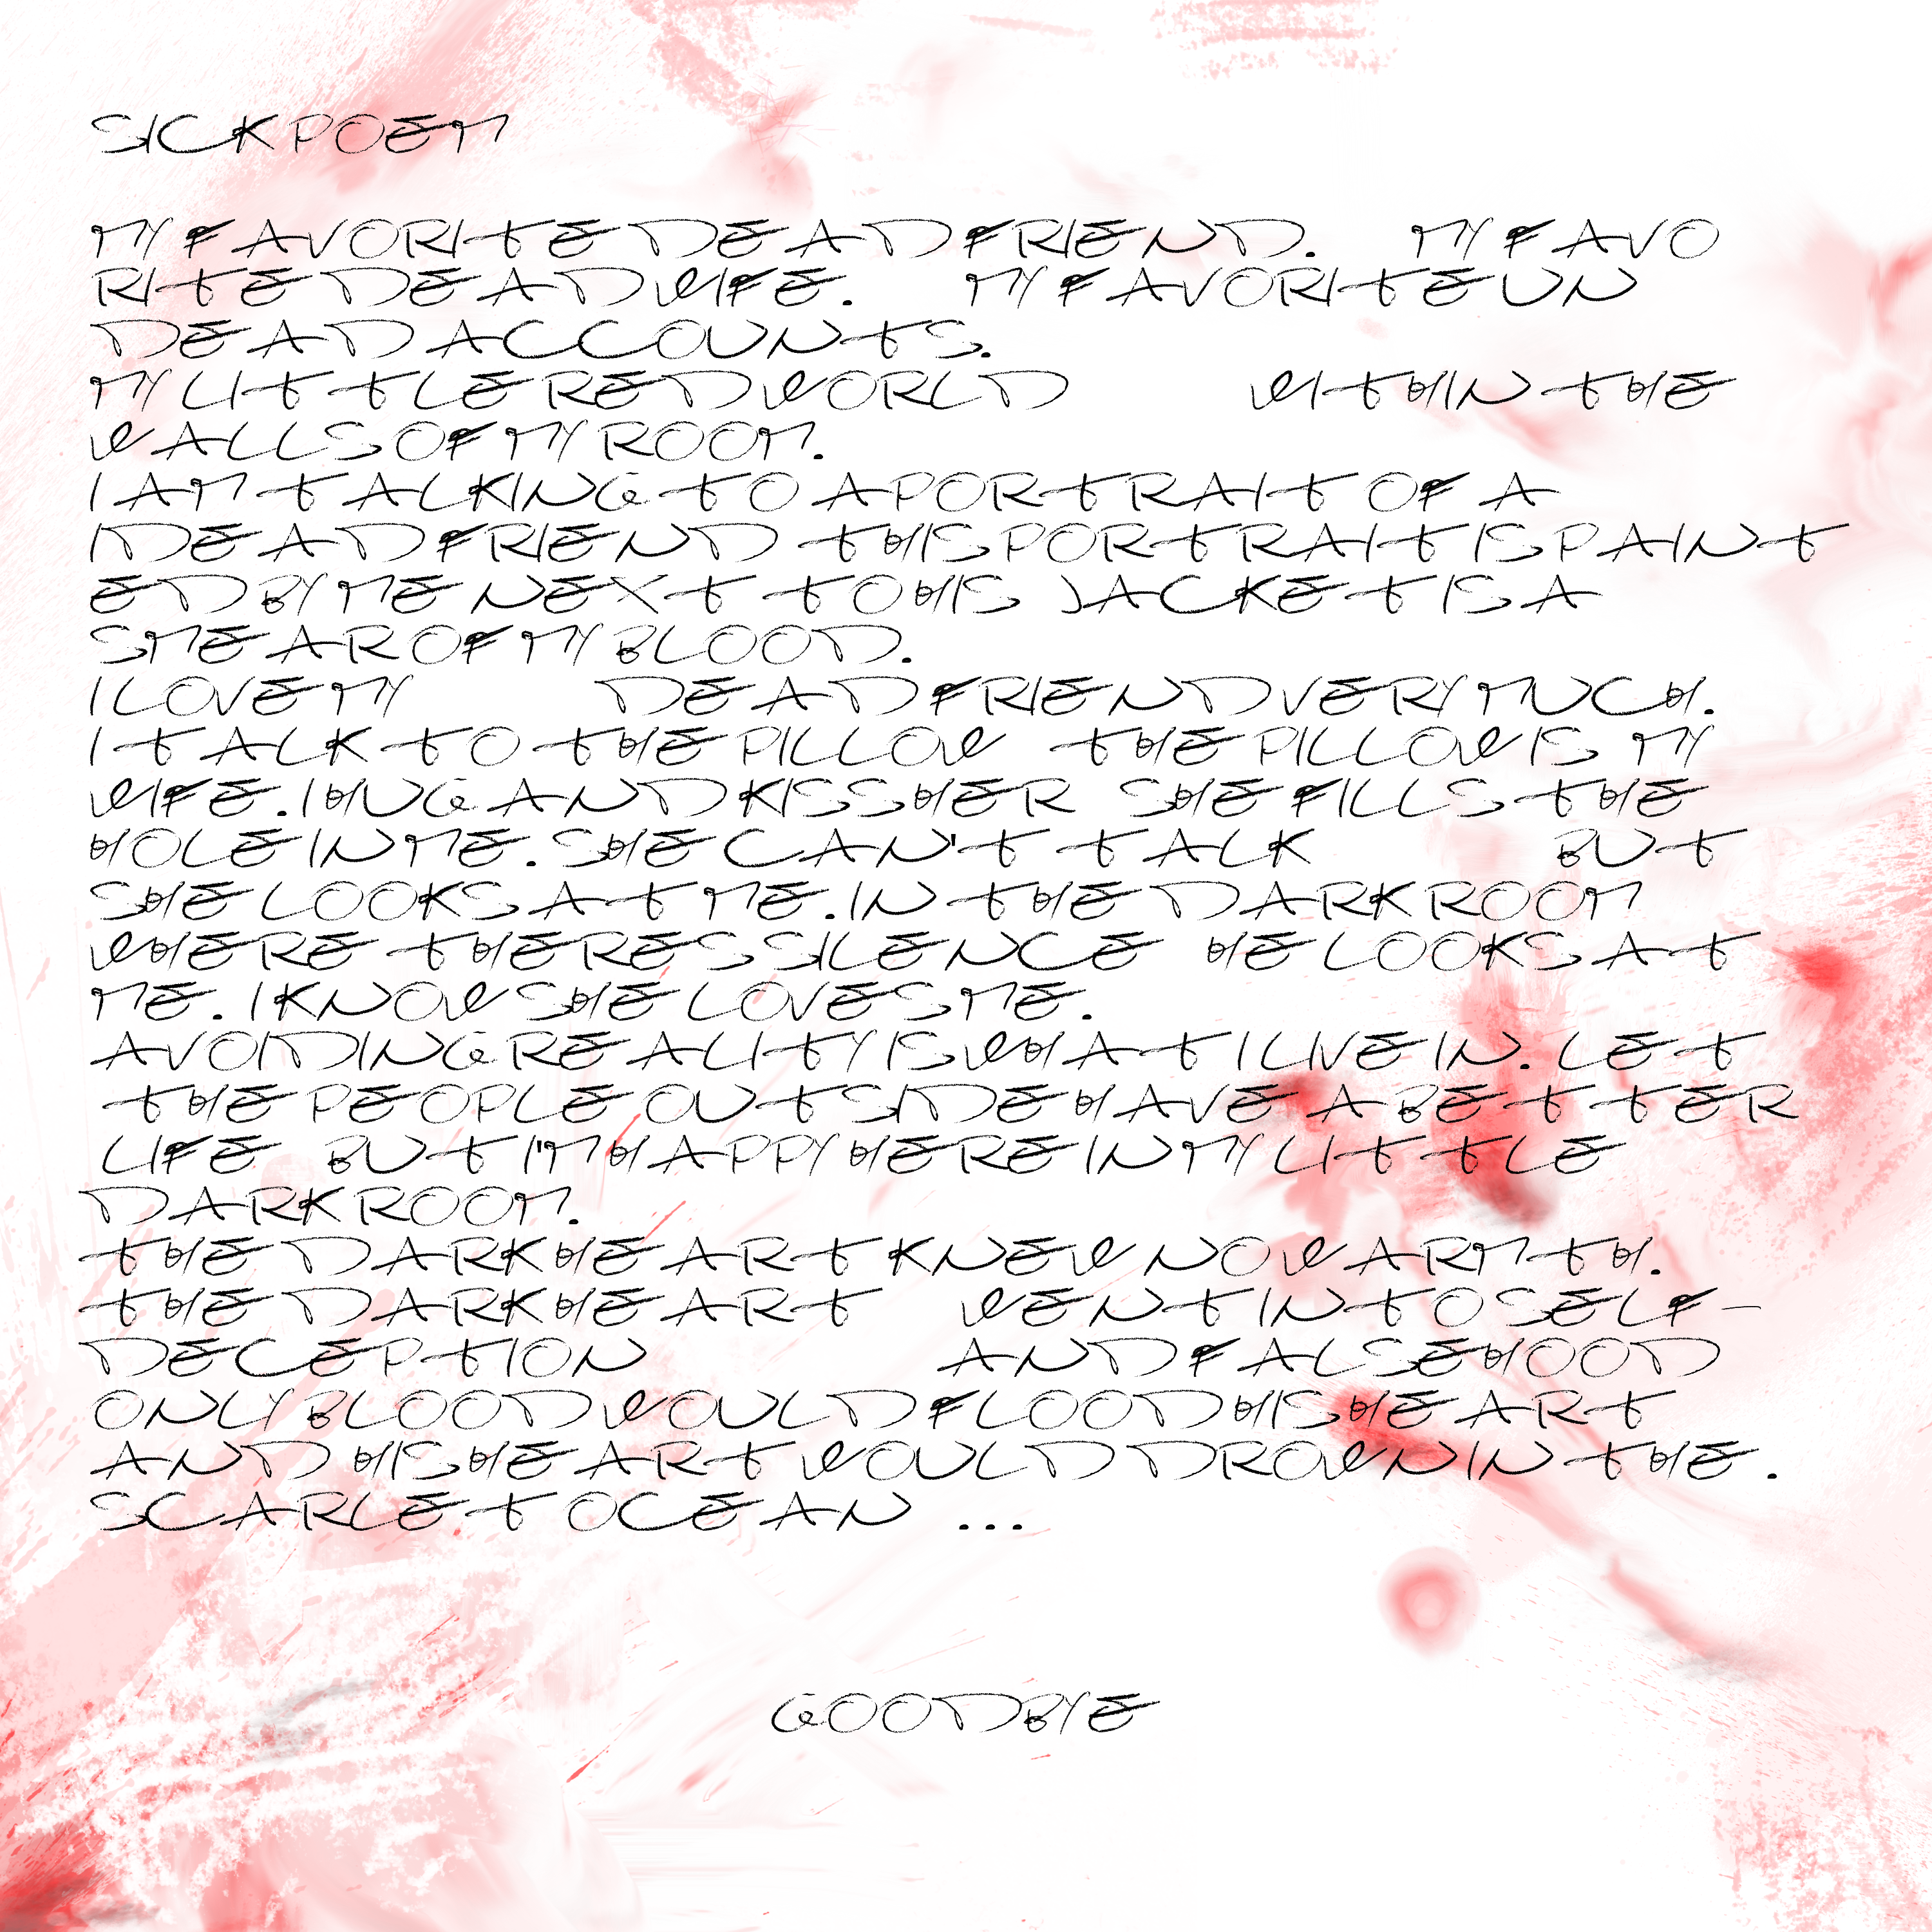 SICK POEM
MY FAVORITE DEAD FRIEND. MY FAVO
RITE DEAD WIFE. MY FAVORITE UN
DEAD ACCOUNTS.
MY LITTLE RED WORLD WITHIN THE
WALLS OF MY ROOM.
I AM TALKING TO A PORTRAIT OF A
DEAD FRIEND THIS PORTRAIT IS PAINT
ED BY ME NEXT TO HIS JACKET IS A
SMEAR OF MY BLOOD.
I LOVE MY DEAD FRIEND VERY MUCH.
I TALK TO THE PILLOW THE PILLOW IS MY
WIFE. I HUG AND KISS HER SHE FILLS THE
HOLE IN ME. SHE CAN'T TALK BUT
SHE LOOKS AT ME. IN THE DARK ROOM
WHERE THERES SILENCE HE LOOKS AT
ME. I KNOW SHE LOVES ME.
AVOIDING REALITY IS WHAT I LIVE IN. LET
THE PEOPLE OUTSIDE HAVE A BETTER
LIFE BUT I'M HAPPY HERE IN MY LITTLE
DARK ROOM.
THE DARK HEART KNEW NO WARMTH.
THE DARK HEART WENT INTO SELF-
DECEPTION AND FALSEHOOD
ONLY BLOOD WOULD FLOOD HIS HEART
AND HIS HEART WOULD DROWN IN THE.
SCARLET OCEAN ...
GOODBYE